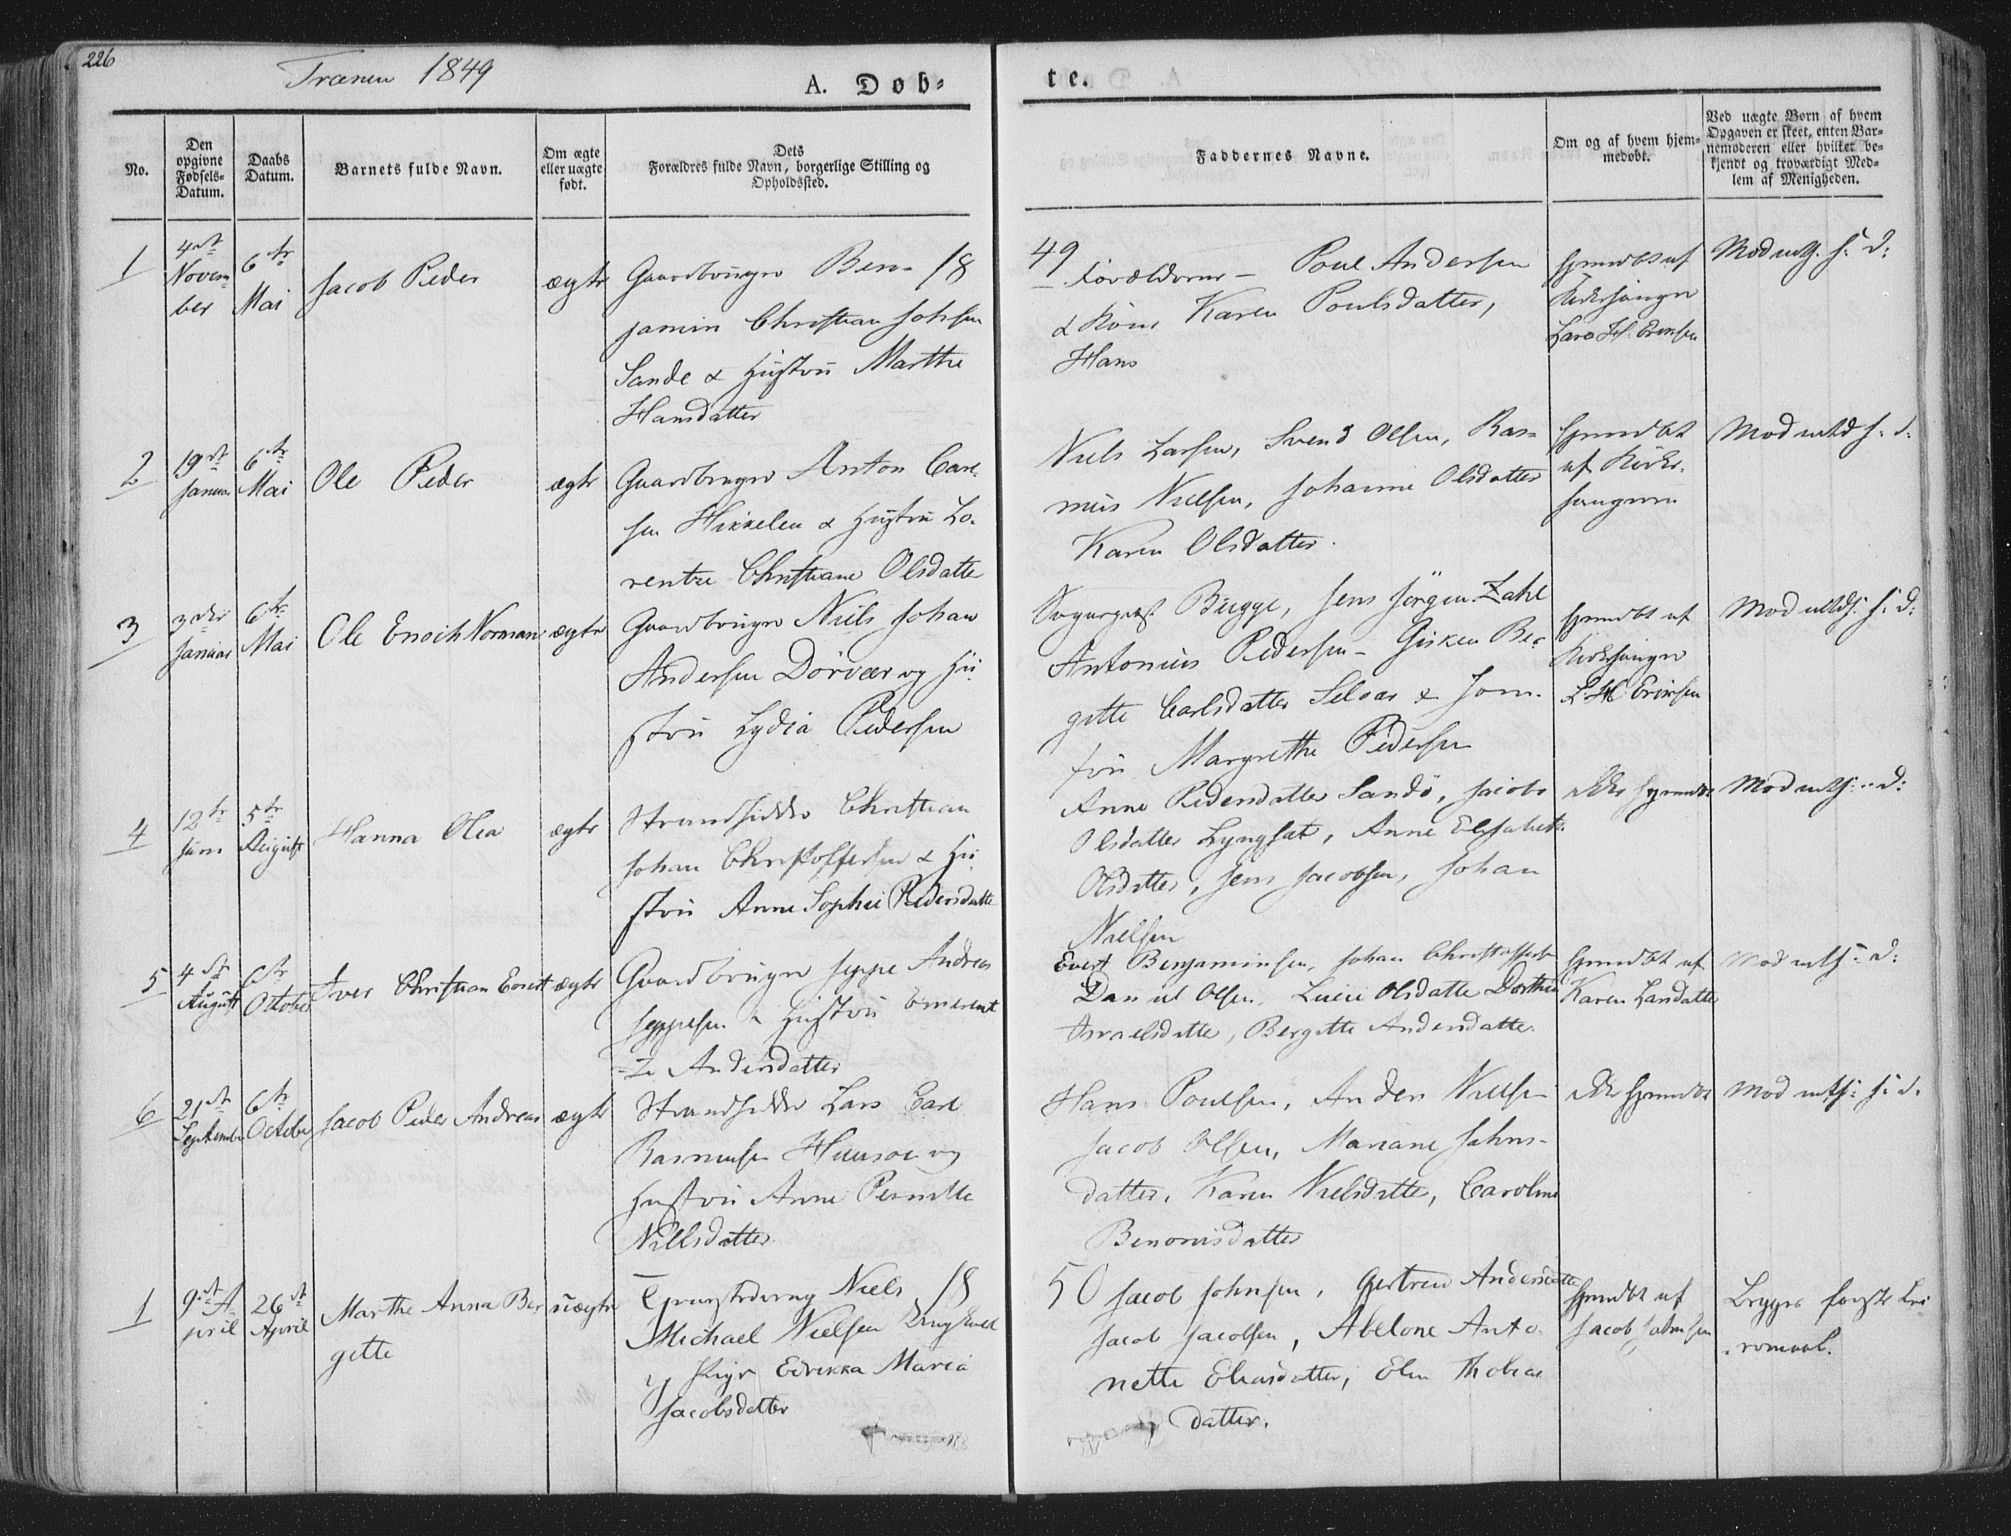 226
Trænen 1849
A. Døb-
te.
No.
Den opgivne Fødsels-Datum.
Daabs Datum.
Barnets fulde Navn.
Om ægte eller uægte født.
Dets Forældres fulde Navn, borgerlige Stilling og Opholdssted.
Faddernes Navne.
Om og af hvem hjem-medøbt.
Ved uægte Børn af hvem Opgaven er skeet, enten Bar-nemoderen eller hvilket be-kjendt og troværdigt Med-lem af Menigheden.
18
49
1
4de
Novem
ber
6te
Mai
Jacob Peder
ægte
Gaardbruger Ben-
jamin Christian Johsen
Sande & Hustru Marthe
Hansdatter
Forældrene - Poul Andersen
& Kone Karen Poulsdatter,
Hans
hjemdøbt af
Kirkesanger
Lars H. Eriksen
2
19de
Januar
6te
Mai
Ole Peder
ægte
Gaardbruger Anton Carl-
sen Hikkelen & Hustru Lo-
rentze Christiane Olsdatter
Niels Larsen, Svend Olsen, Ras-
mus Nielsen, Johanne Olsdatter
Karen Olsdatter.
hjemdøbt
af Kirke-
sangeren
3
3die
Januar
6te
Mai
Ole Enoch Norman
ægte
Gaardbruger Niels Johan
Andersen Dörvær og Hu-
stru Lydia Pedersen
Sogneprest Bugge, Jens Jörgen Zahl
Antonius Pedersen - Gisken Ber-
gitte Carlsdatter Selvær & Jom-
fru Margrethe Pedersen
hjemdøbt af
Kirkesanger
L. H. Eriksen
4
12te
Juni
5te
August
Hanna Olea
ægte
Strandsidder Christian
Johan Christoffersen & Hu-
stru Anne Sophie Pedersdatter
Anne Pedersdatter Sandö, Jacob
Olsdatter Lyngsat, Anne Elisabeth
Olsdatter, Jens Jacobsen, Johan
Nielsen
ikke hjemdøbt
5
4de
August
6te
October
Iver Christian Evert
ægte
Gaardbruger Jeppe Andreas
Jeppesen & Hustru Emerent
ze Andersdatter
Evert Benjaminsen, Johan Christoffersen
Daniel Olsen, Lucie Olsdatter Dorthea
Israelsdatter, Bergitte Andersdatter.
hjemdøbt af
Karen Larsdatter
6
21de
September
6te
October
Jacob Peder Andreas
ægte
Strandsidder Lars Carl
Rasmusen Huusøe og
Hustru Anne Pernille
Nielsdatter
Hans Poulsen, Anders Nielsen
Jacob Olsen, Mariane Johns-
datter, Karen Nielsdatter, Caroline
Benonisdatter
ikke hjemdøbt
18
50
1
9de A-
pril
26de
April
Marthe Anna Ber
gitte
uægte
Niels
Michael Nielsen
Pige Edrikka Maria
Jacobsdatter
Jacob Johnsen, Gertrud Andersdatter
Jacob Jacobsen, Abelone Anto-
nette Eliasdatter, Elen Thobias
datter.
hjemdøbt af
Jacob Johnsen